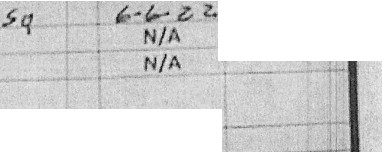 Sq 6-6-22
N/A
N/A